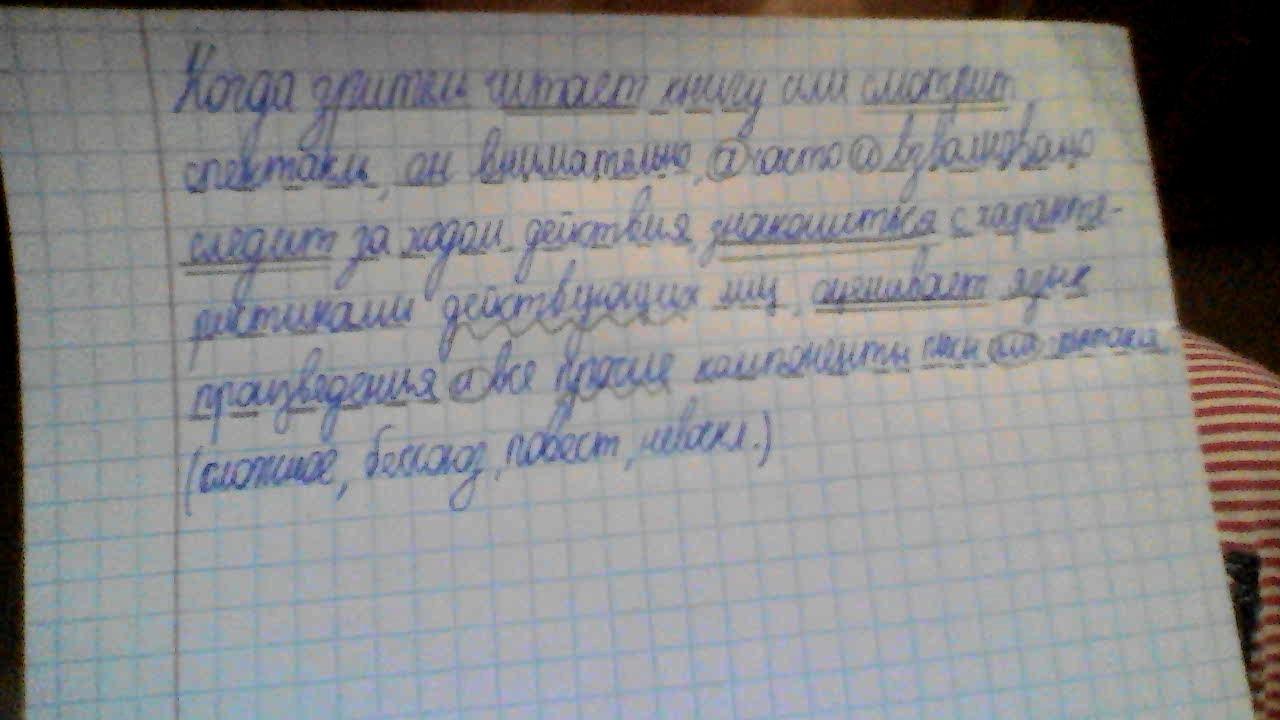 Когда зритель читает книгу или смотрит
спектакль, он внимательно, а часто и взволновано
следит за ходом действия, знакомиться с характе-
ристиками действующих лиц, оценивает язык
произведения и все прочие компоненты
(сложное, бессоюз, повест, невоскл.)